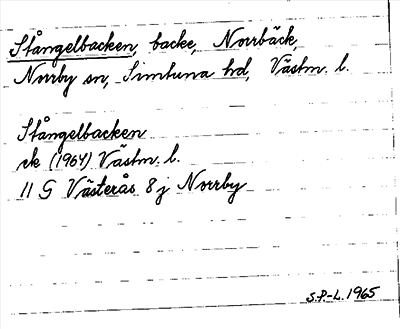 Stångelbacken, backe, Norrbäck,
Norrby sn, Simtuna hd, Västm. l.
Stångelbacken
ek (1964) Västm. l.
11 G Västerås 8 j Norrby
S.P-L. 1965